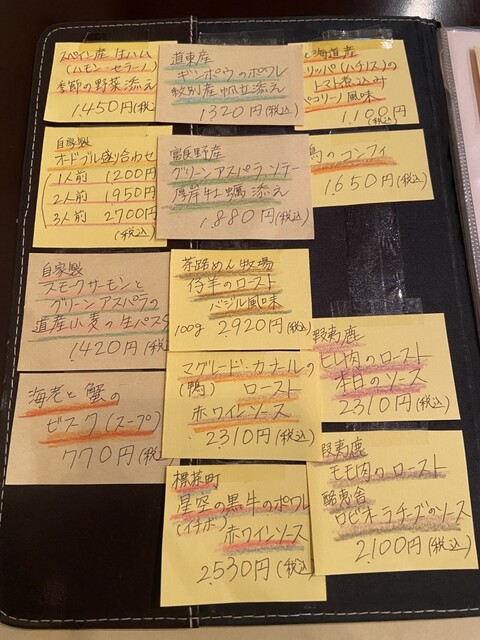 スペイン産 生ハム
(ハモン・セラーノ)
季節の野菜添え
1,450円(税
自家製
オードブル盛り合わせ
1人前 1200円
2人前 1950円
3人前 2700円
(税込)
自家製
スモークサーモンと
グリーンアスパラの
道産小麦の生パス
1,420円(税
海老と蟹の
ビスク(スープ)
770円(税
道東産
ギンポウのポワレ
紋別産帆立添え
1320円(税込)
富良野産
グリーンアスパラソテー
厚岸牡蠣添え
1,880円(税込)
茶路めん羊牧場
仔羊のロースト
バジル風味
100g 2,920円(税込)
マグレード・カナールの
(鴨) ロースト
赤ワインソース
2310円(税込)
標茶町
星空の黒牛のポワレ
(イチボ) 赤ワインソース
2530円(税込)
海道産
リッパ(ハチノス)の
トマト煮込み
ペコリーノ風味
1,100円
(税込)
のコンフィ
1,650円(税込)
蝦夷鹿
ヒレ肉のロースト
本日のソース
2310円(税込)
蝦夷鹿
モモ肉のロースト
酪恵舎
ロビオーラチーズのソース
2,100円(税込)